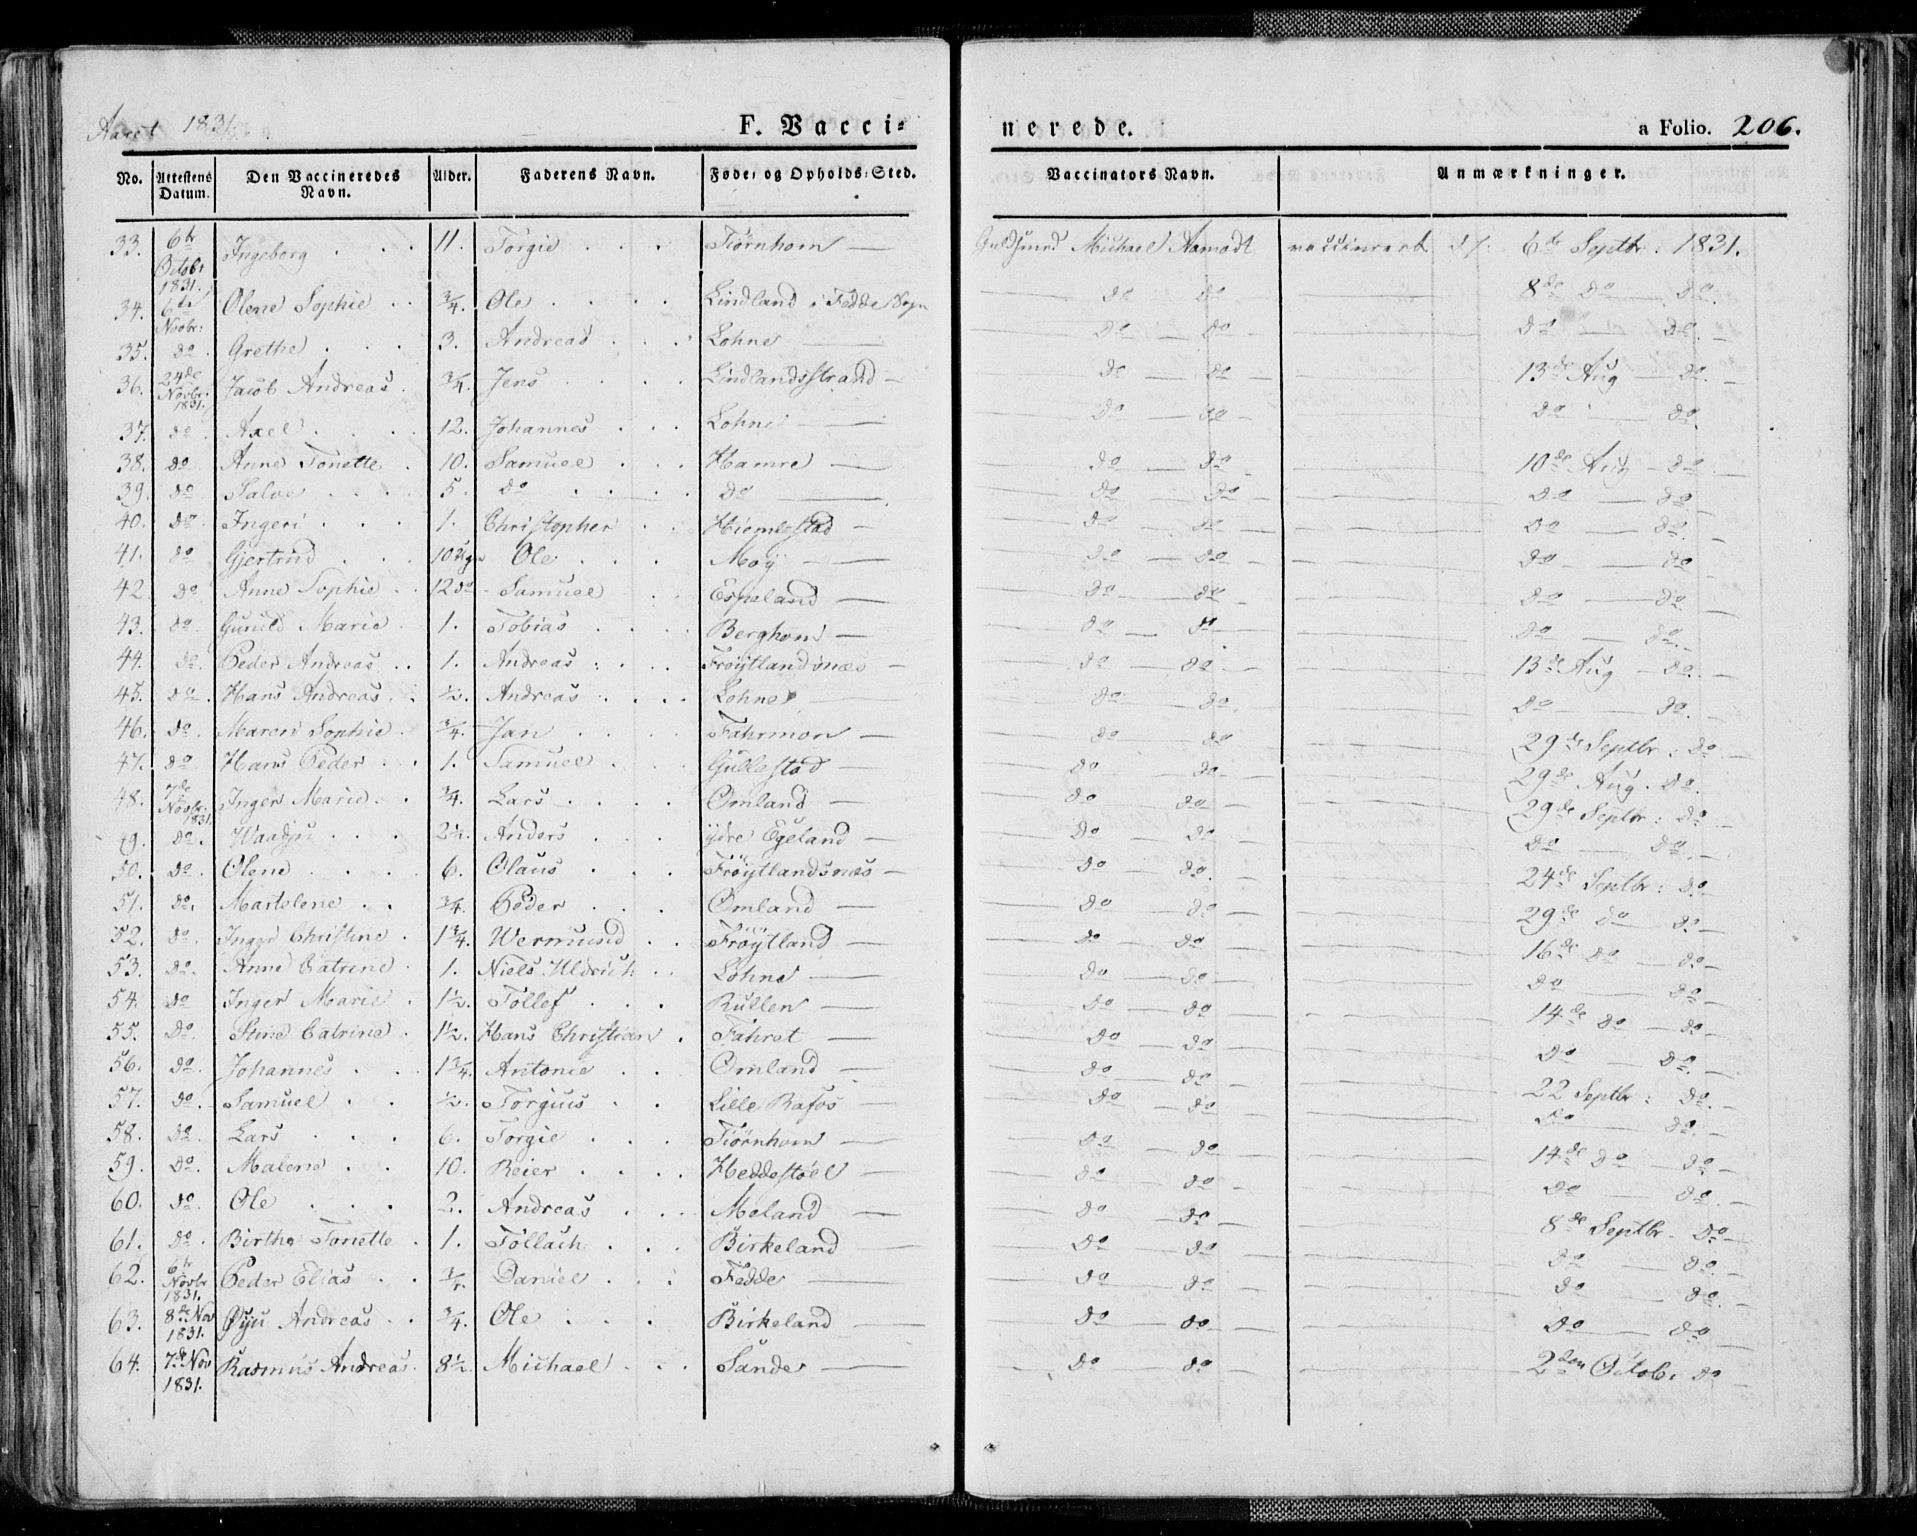 Aaret 1831. F. Vacci= nerede. a Folio. 206.
No. Attestens Datum. Den Vaccineredes Navn. Alder. Faderens Navn. Føde= og Opholds=Sted. Vaccinators Navn. Anmærkninger.
33. 6te Octobr 1831. Ingeborg . . . 11. Torgie . . . Tiörnhom — Guldsmed Michael Aamodt vaccineret d: 6te Septbr: 1831.
34. 6te Novbr: Olene Sophie . . 3/4. Ole . . . . Lindland i Fedde Sogn — do do — 8de do — do.
35. do. Grethe . . . 3. Andreas . . . Lohne — do — do — do — do. —
36. 24de Novbr: 1831. Jacob Andreas . 3/4. Jens . . . . Lindlandsstrand — do — do — 13de Aug — do. —
37. do. Axel . . . . 12. Johannes . . . Lohne — do — do — do — do.
38. do Anne Tonette . 10. Samuel . . . Hamre — do — do — 10de Aug — do —
39. do Salve . . . . 5. do . . . . do — do — do — do — do —
40. do. Ingeri . . . 1. Christopher . . Hiemlestad — do — do — do — do. —
41. do Gjertrud . . . 10 Ugr Ole . . . Moÿ — do — do — do — do
42. do Anne Sophie . . 12 do - Samuel . . Espeland — do — do — do — do. —
43. do. Gunild Marie . 1. Tobias . . . . Berghom — do — do — do — do. —
44. do. Peder Andreas . . 1. Andreas . . . . Frøÿtlandsnæs — do — do. — 13de Aug — do. —
45. do. Hans Andreas . . 1/2. Andreas . . . . Lohne — do — do. — do — do. —
46. do. Maren Sophie . 3/4. Jan . . . . Fahrmon — do — do — 29de Septbr: do —
47. do Hans Peder . . 1. Samuel . . . Gullestad — do — do — 29de Aug. do.
48. 7de Novbr. 1831. Inger Marie . . 3/4. Lars . . . . Omland — do — do — 29de Septbr: do —
49. do. . . . 2 1/2. Anders . . . ÿdre Egeland — do — do — do — do. —
50. do. Olene . . . . 6. Olaus . . . Frøÿtlandsnæs — do — do. — 24de Septbr: do —
51. do. Martelene . . 3/4. Peder . . . Omland — do — do — 29de do — do —
52. do. Inger Christine . 1 3/4. Wermund . . Frøÿtland — do — do — 16de do — do —
53. do. Anne Catrine . 1. Niels Uldrich . . Lohne — do — do — do — do —
54. do Inger Marie . 1 1/2. Tollef . . . Rullen — do — do — 14de do — do —
55. do Stine Catrine . 1 1/2. Hans Christian . Fahret — do — do — do — do. —
56. do. Johannes . . . 1 3/4. Antonie . . Omland — do — do — 22 Septbr: do. —
57. do. Samuel . . 1/2. Torgius . . Lille Rafos — do — do — do — do. —
58. do. Lars . . . 6. Torgie . . . Tiörnhom — do — do — 14de do — do —
59. do. Malene . . 10. Reier . . . . Heddestöel — do — do — do — do. —
60. do. Ole . . . 2. Andreas . . . Meland — do — do — 8de Septbr. do —
61. do. Birthe Tonette . 1. Tollach . . . Birkeland — do — do — do — do. —
62. 6te Novbr 1831. Peder Elias . . 3/4. Daniel . . . Fedde — do — do — do — do. —
63. 8de Nov 1831. Andreas . . 3/4. Ole . . . Birkeland — do — do — do — do —
64. 7de Nov 1831. Rasmus Andreas . 8 1/2. Michael . . . Sande — do do — 2den Octob: do —